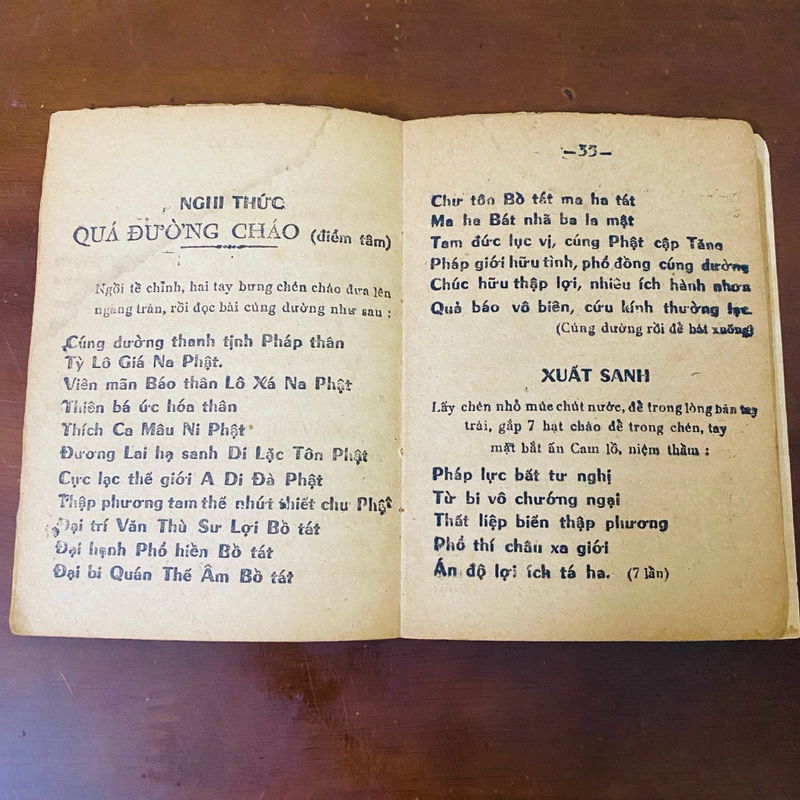 NGHI THỨC
QUÁ ĐƯỜNG CHÁO (điểm tâm)
Ngồi tề chỉnh, hai tay bưng chén cháo đưa lên
ngang trán, rồi đọc bài cúng dường như sau :
Cúng dường thanh tịnh Pháp thân
Tỳ Lô Giá Na Phật.
Viên mãn Báo thân Lô Xá Na Phật
Thiên bá ức hóa thân
Thích Ca Mâu Ni Phật
Đương Lai hạ sanh Di Lặc Tôn Phật
Cực lạc thế giới A Di Đà Phật
Thập phương tam thế nhứt thiết chư Phật
Đại trí Văn Thù Sư Lợi Bồ tát
Đại hạnh Phổ hiền Bồ tát
Đại bi Quán Thế Âm Bồ tát
—33—
Chư tôn Bồ tát ma ha tát
Ma ha Bát nhã ba la mật
Tam đức lục vị, cúng Phật cập Tăng
Pháp giới hữu tình, phổ đồng cúng dường
Chúc hữu thập lợi, nhiêu ích hành nhơn
Quả báo vô biên, cứu kính thường lạc.
(Cúng dường rồi để bát xuống)
XUẤT SANH
Lấy chén nhỏ múc chút nước, để trong lòng bàn tay
trái, gắp 7 hạt cháo để trong chén, tay
mặt bắt ấn Cam lồ, niệm thầm :
Pháp lực bất tư nghị
Từ bi vô chướng ngại
Thất liệp biến thập phương
Phổ thí châu xa giới
Án độ lợi ích tá ha. (7 lần)